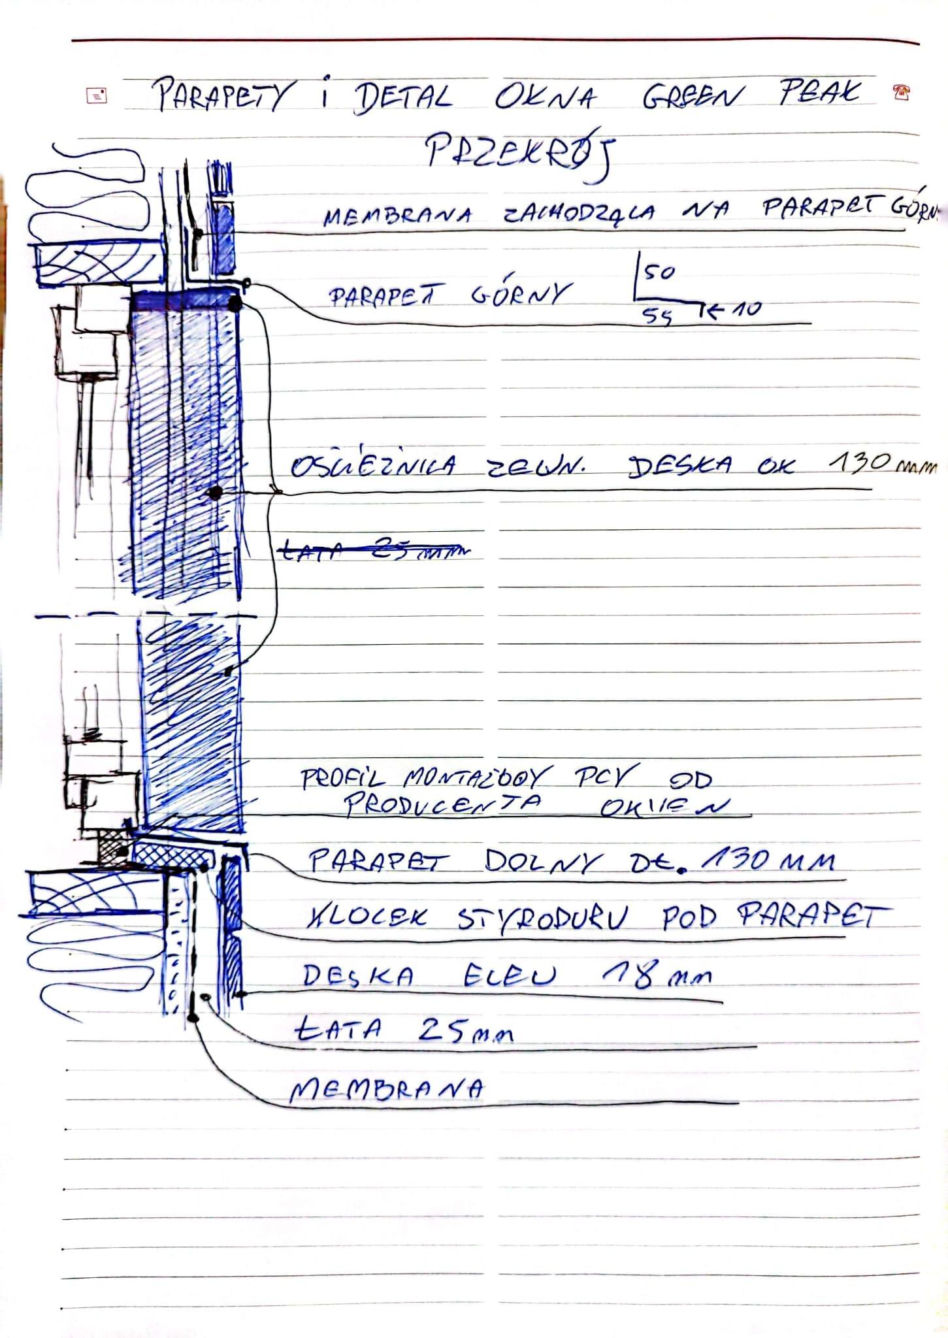 PARAPETY i DETAL OKNA GREEN PEAK
PRZEKRÓJ
MEMBRANA ZACHODZĄCA NA PARAPET GÓRN
PARAPET GÓRNY
50
55 10
OŚCIEŻNICA ZEWN. DESKA OK 130 mm
ŁATA 25 mm
PROFIL MONTAŻOWY PCV OD
PRODUCENTA OKIEN
PARAPET DOLNY DŁ. 130 MM
KLOCEK STYRODURU POD PARAPET
DESKA ELEW 18 mm
ŁATA 25 mm
MEMBRANA